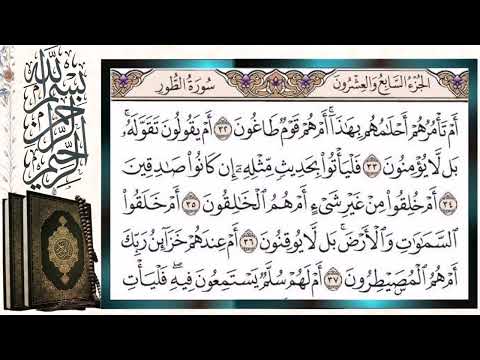 الجزء السابع والعشرون
سورة الطور
أَمۡ تَأۡمُرُهُمۡ أَحۡلَٰمُهُم بِهَٰذَآۚ أَمۡ هُمۡ قَوۡمٞ طَاغُونَ ٣٢ أَمۡ يَقُولُونَ تَقَوَّلَهُۥۚ
بَل لَّا يُؤۡمِنُونَ ٣٣ فَلۡيَأۡتُواْ بِحَدِيثٖ مِّثۡلِهِۦٓ إِن كَانُواْ صَٰدِقِينَ
٣٤ أَمۡ خُلِقُواْ مِنۡ غَيۡرِ شَيۡءٍ أَمۡ هُمُ ٱلۡخَٰلِقُونَ ٣٥ أَمۡ خَلَقُواْ
ٱلسَّمَٰوَٰتِ وَٱلۡأَرۡضَۚ بَل لَّا يُوقِنُونَ ٣٦ أَمۡ عِندَهُمۡ خَزَآئِنُ رَبِّكَ
أَمۡ هُمُ ٱلۡمُصَۜيۡطِرُونَ ٣٧ أَمۡ لَهُمۡ سُلَّمٞ يَسۡتَمِعُونَ فِيهِۖ فَلۡيَأۡتِ
بسم الله الرحمن الرحيم